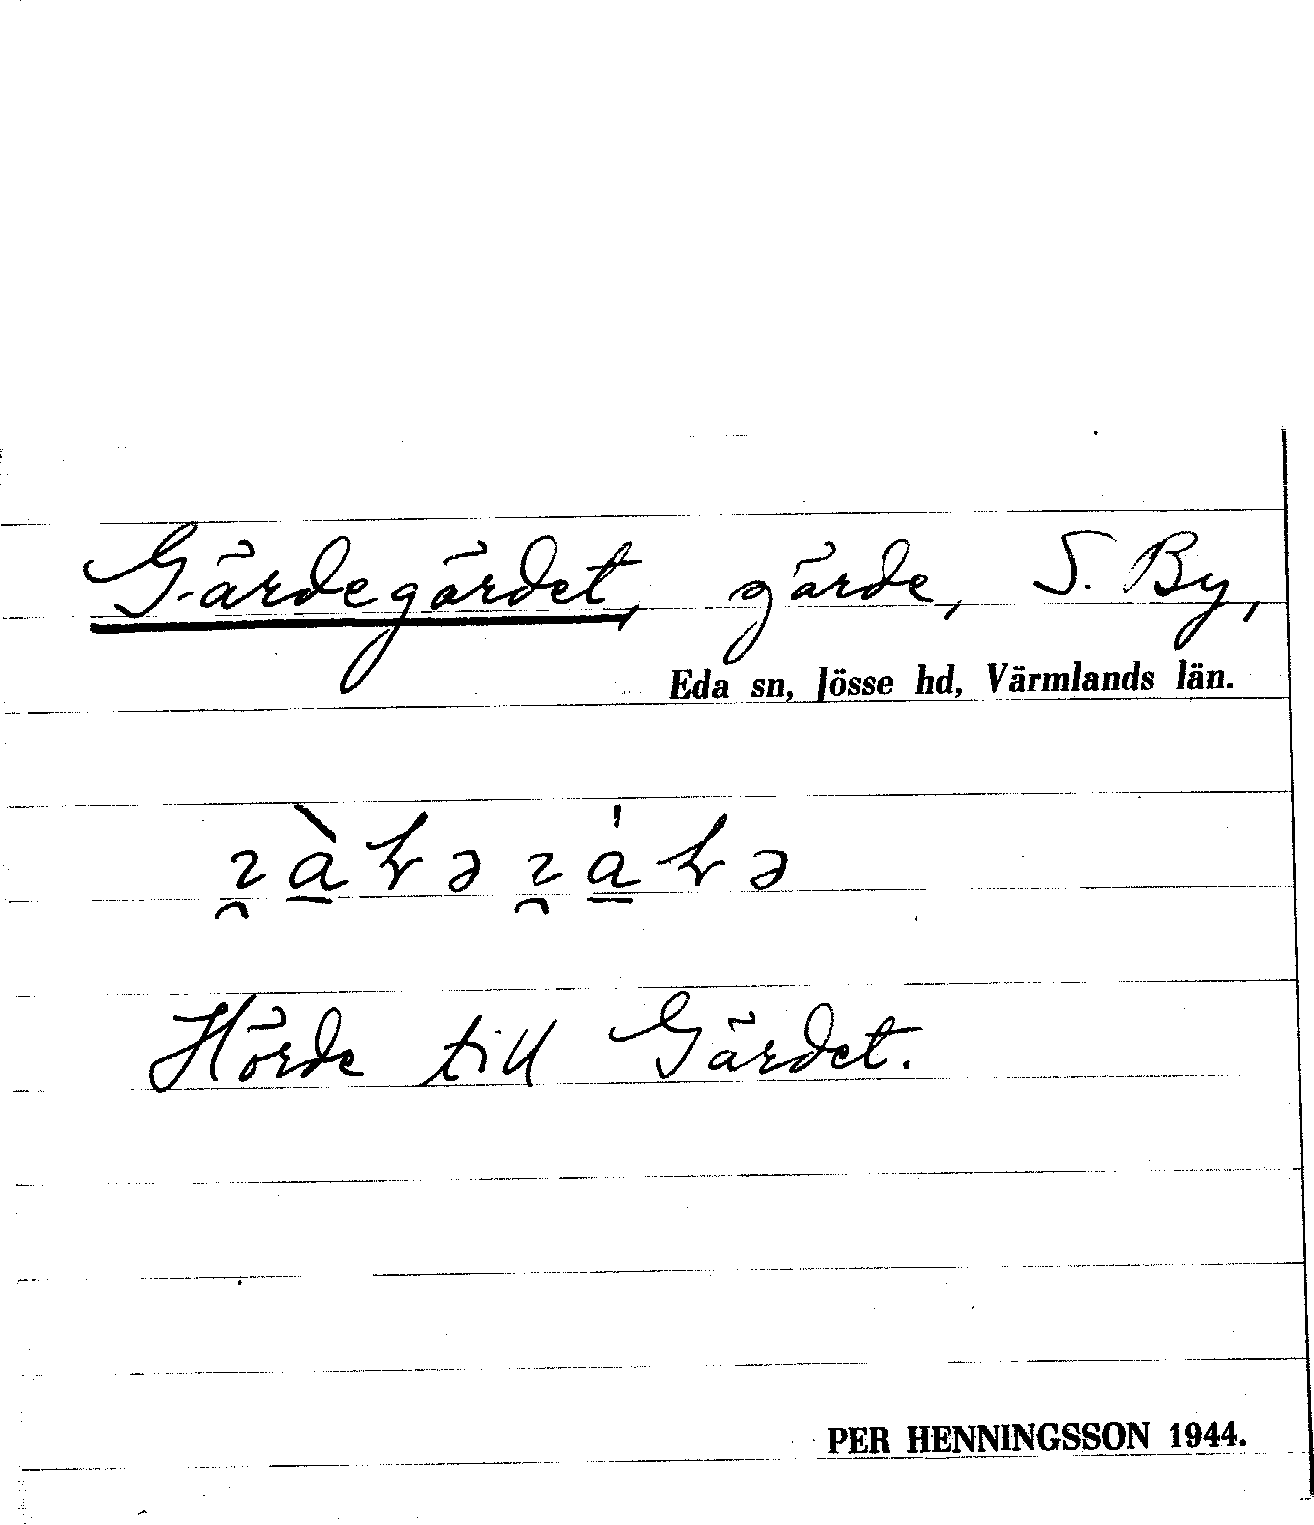 Gärdegärdet, gärde, S. By,
Eda sn, Jösse hd, Värmlands län.
Hörde till Gärdet.
PER HENNINGSSON 1944.